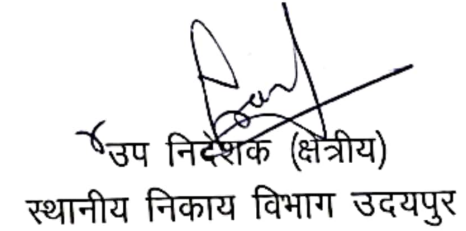 उप निदेशक (क्षेत्रीय)
स्थानीय निकाय विभाग उदयपुर